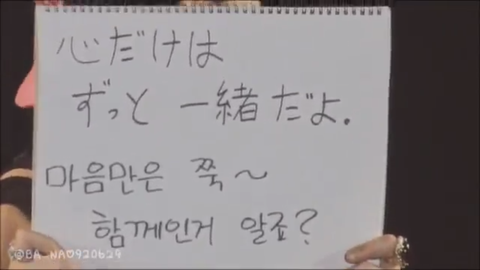 心だけは
ずっと 一緒だよ.
마음만은 쭉~
함께인거 알죠?
@BA_NA0920629